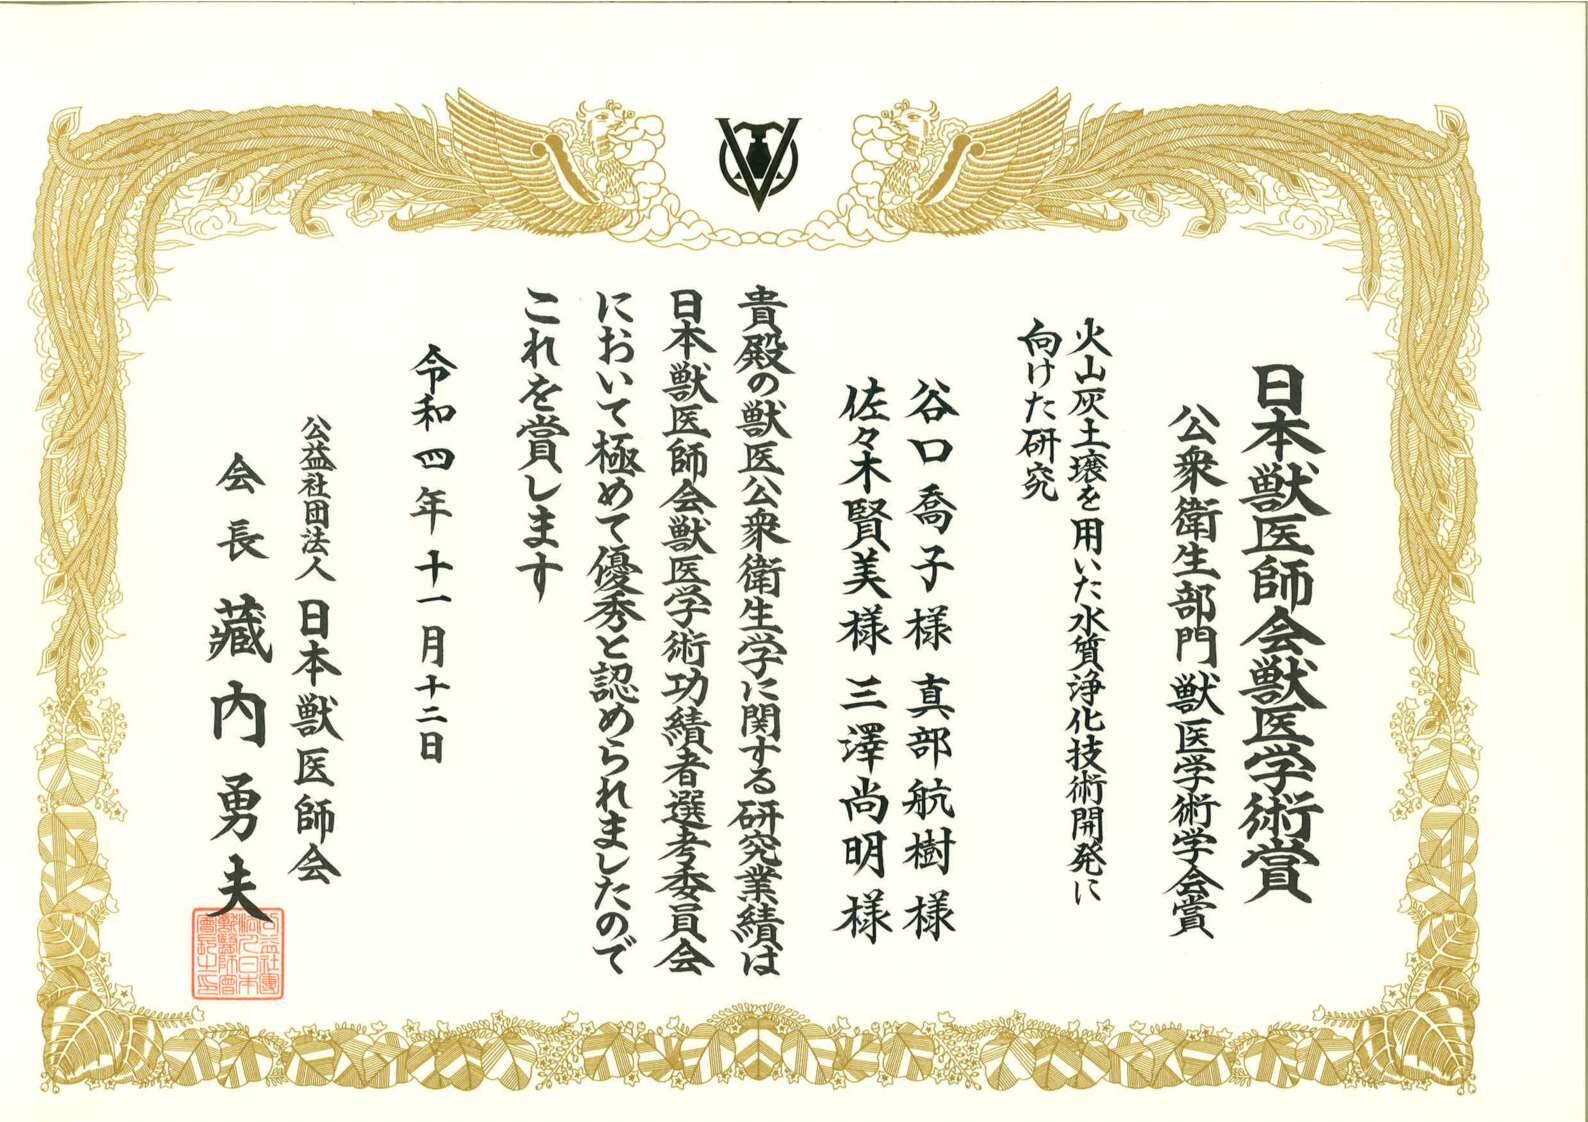 日本獣医師会獣医学術賞
公衆衛生部門 獣医学術学会賞
火山灰土壌を用いた水質浄化技術開発に
向けた研究
谷口喬子様 真部航樹様
佐々木賢美様 三澤尚明様
貴殿の獣医公衆衛生学に関する研究業績は
日本獣医師会獣医学術功績者選考委員会
において極めて優秀と認められましたので
これを賞します
令和四年十一月十二日
公益社団法人 日本獣医師会
会長 藏内勇夫
公益社團
法人日本
獸醫師會
會長之印